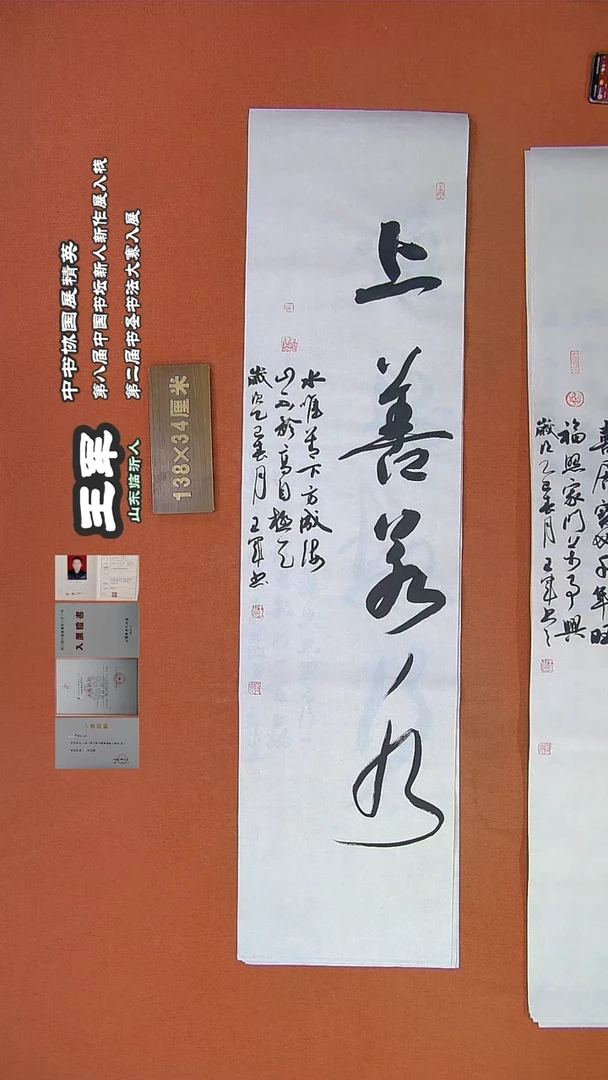 中书协国展精英
第八届中国书坛新人新作展入展
第二届书圣书法大赛入展
王军
山东临沂人
138×34厘米
入展证书
上善若水
水唯善下方成海
山不矜高自极天
岁次乙巳春月 王军书
福照家门万事兴
岁次乙巳春月 王军书